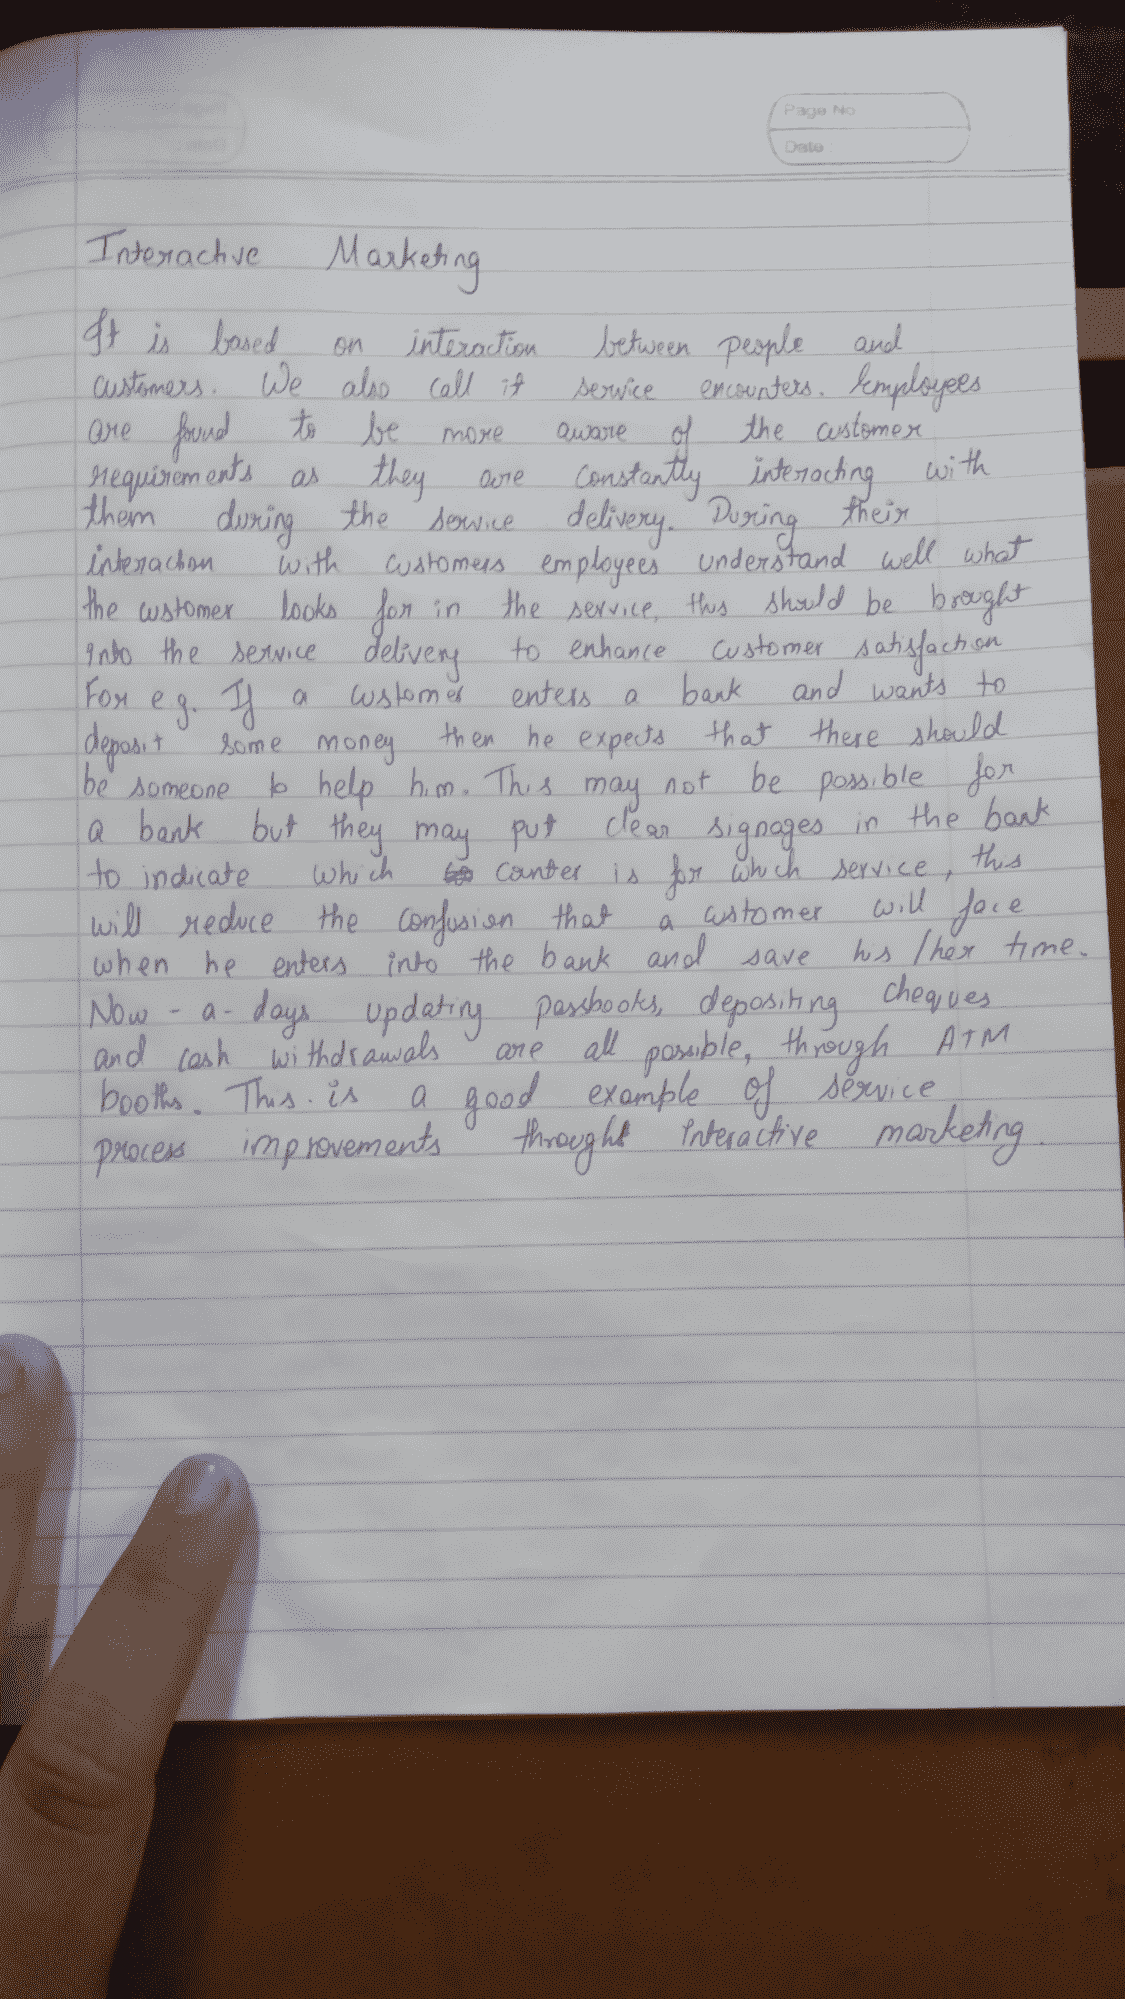 Page No
Date
Interactive Marketing
It is based on interaction between people and
customers. We also call it service encounters. Employees
are found to be more aware of the customer
requirements as they are constantly interacting with
them during the service delivery. During their
interaction with customers employees understand well what
the customer looks for in the service, this should be brought
into the service delivery to enhance customer satisfaction
For eg. If a customer enters a bank and wants to
deposit some money then he expects that there should
be someone to help him. This may not be possible for
a bank but they may put clear signages in the bank
to indicate which counter is for which service, this
will reduce the confusion that a customer will face
when he enters into the bank and save his /her time.
Now - a - days updating passbooks, depositing cheques
and cash withdrawals are all possible, through ATM
booths. This is a good example of service
process improvements through Interactive marketing.